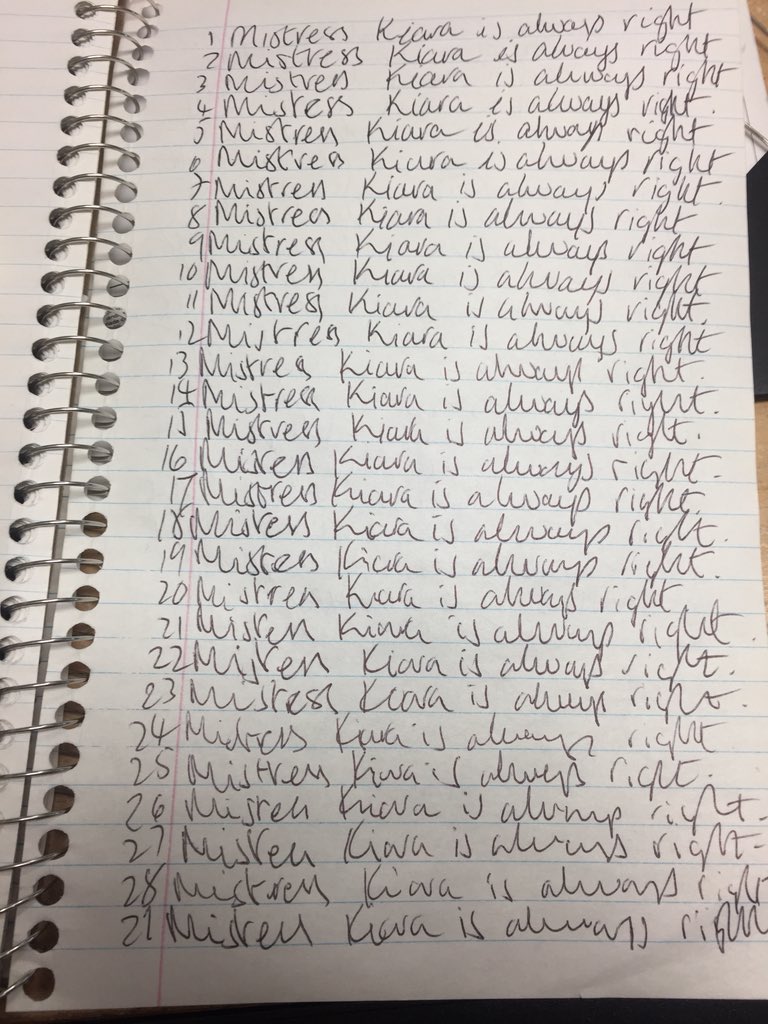 1 Mistress Kiara is always right
2 Mistress Kiara is always right
3 Mistress Kiara is always right
4 Mistress Kiara is always right.
5 Mistress Kiara is always right
6 Mistress Kiara is always right
7 Mistress Kiara is always right.
8 Mistress Kiara is always right
9 Mistress Kiara is always right
10 Mistress Kiara is always right
11 Mistress Kiara is always right.
12 Mistress Kiara is always right
13 Mistress Kiara is always right.
14 Mistress Kiara is always right.
15 Mistress Kiara is always right.
16 Mistress Kiara is always right.
17 Mistress Kiara is always right
18 Mistress Kiara is always right.
19 Mistress Kiara is always right.
20 Mistress Kiara is always right
21 Mistress Kiara is always right.
22 Mistress Kiara is always right.
23 Mistress Kiara is always right.
24 Mistress Kiara is always right
25 Mistress Kiara is always right.
26 Mistress Kiara is always right.
27 Mistress Kiara is always right.
28 Mistress Kiara is always right
29 Mistress Kiara is always right